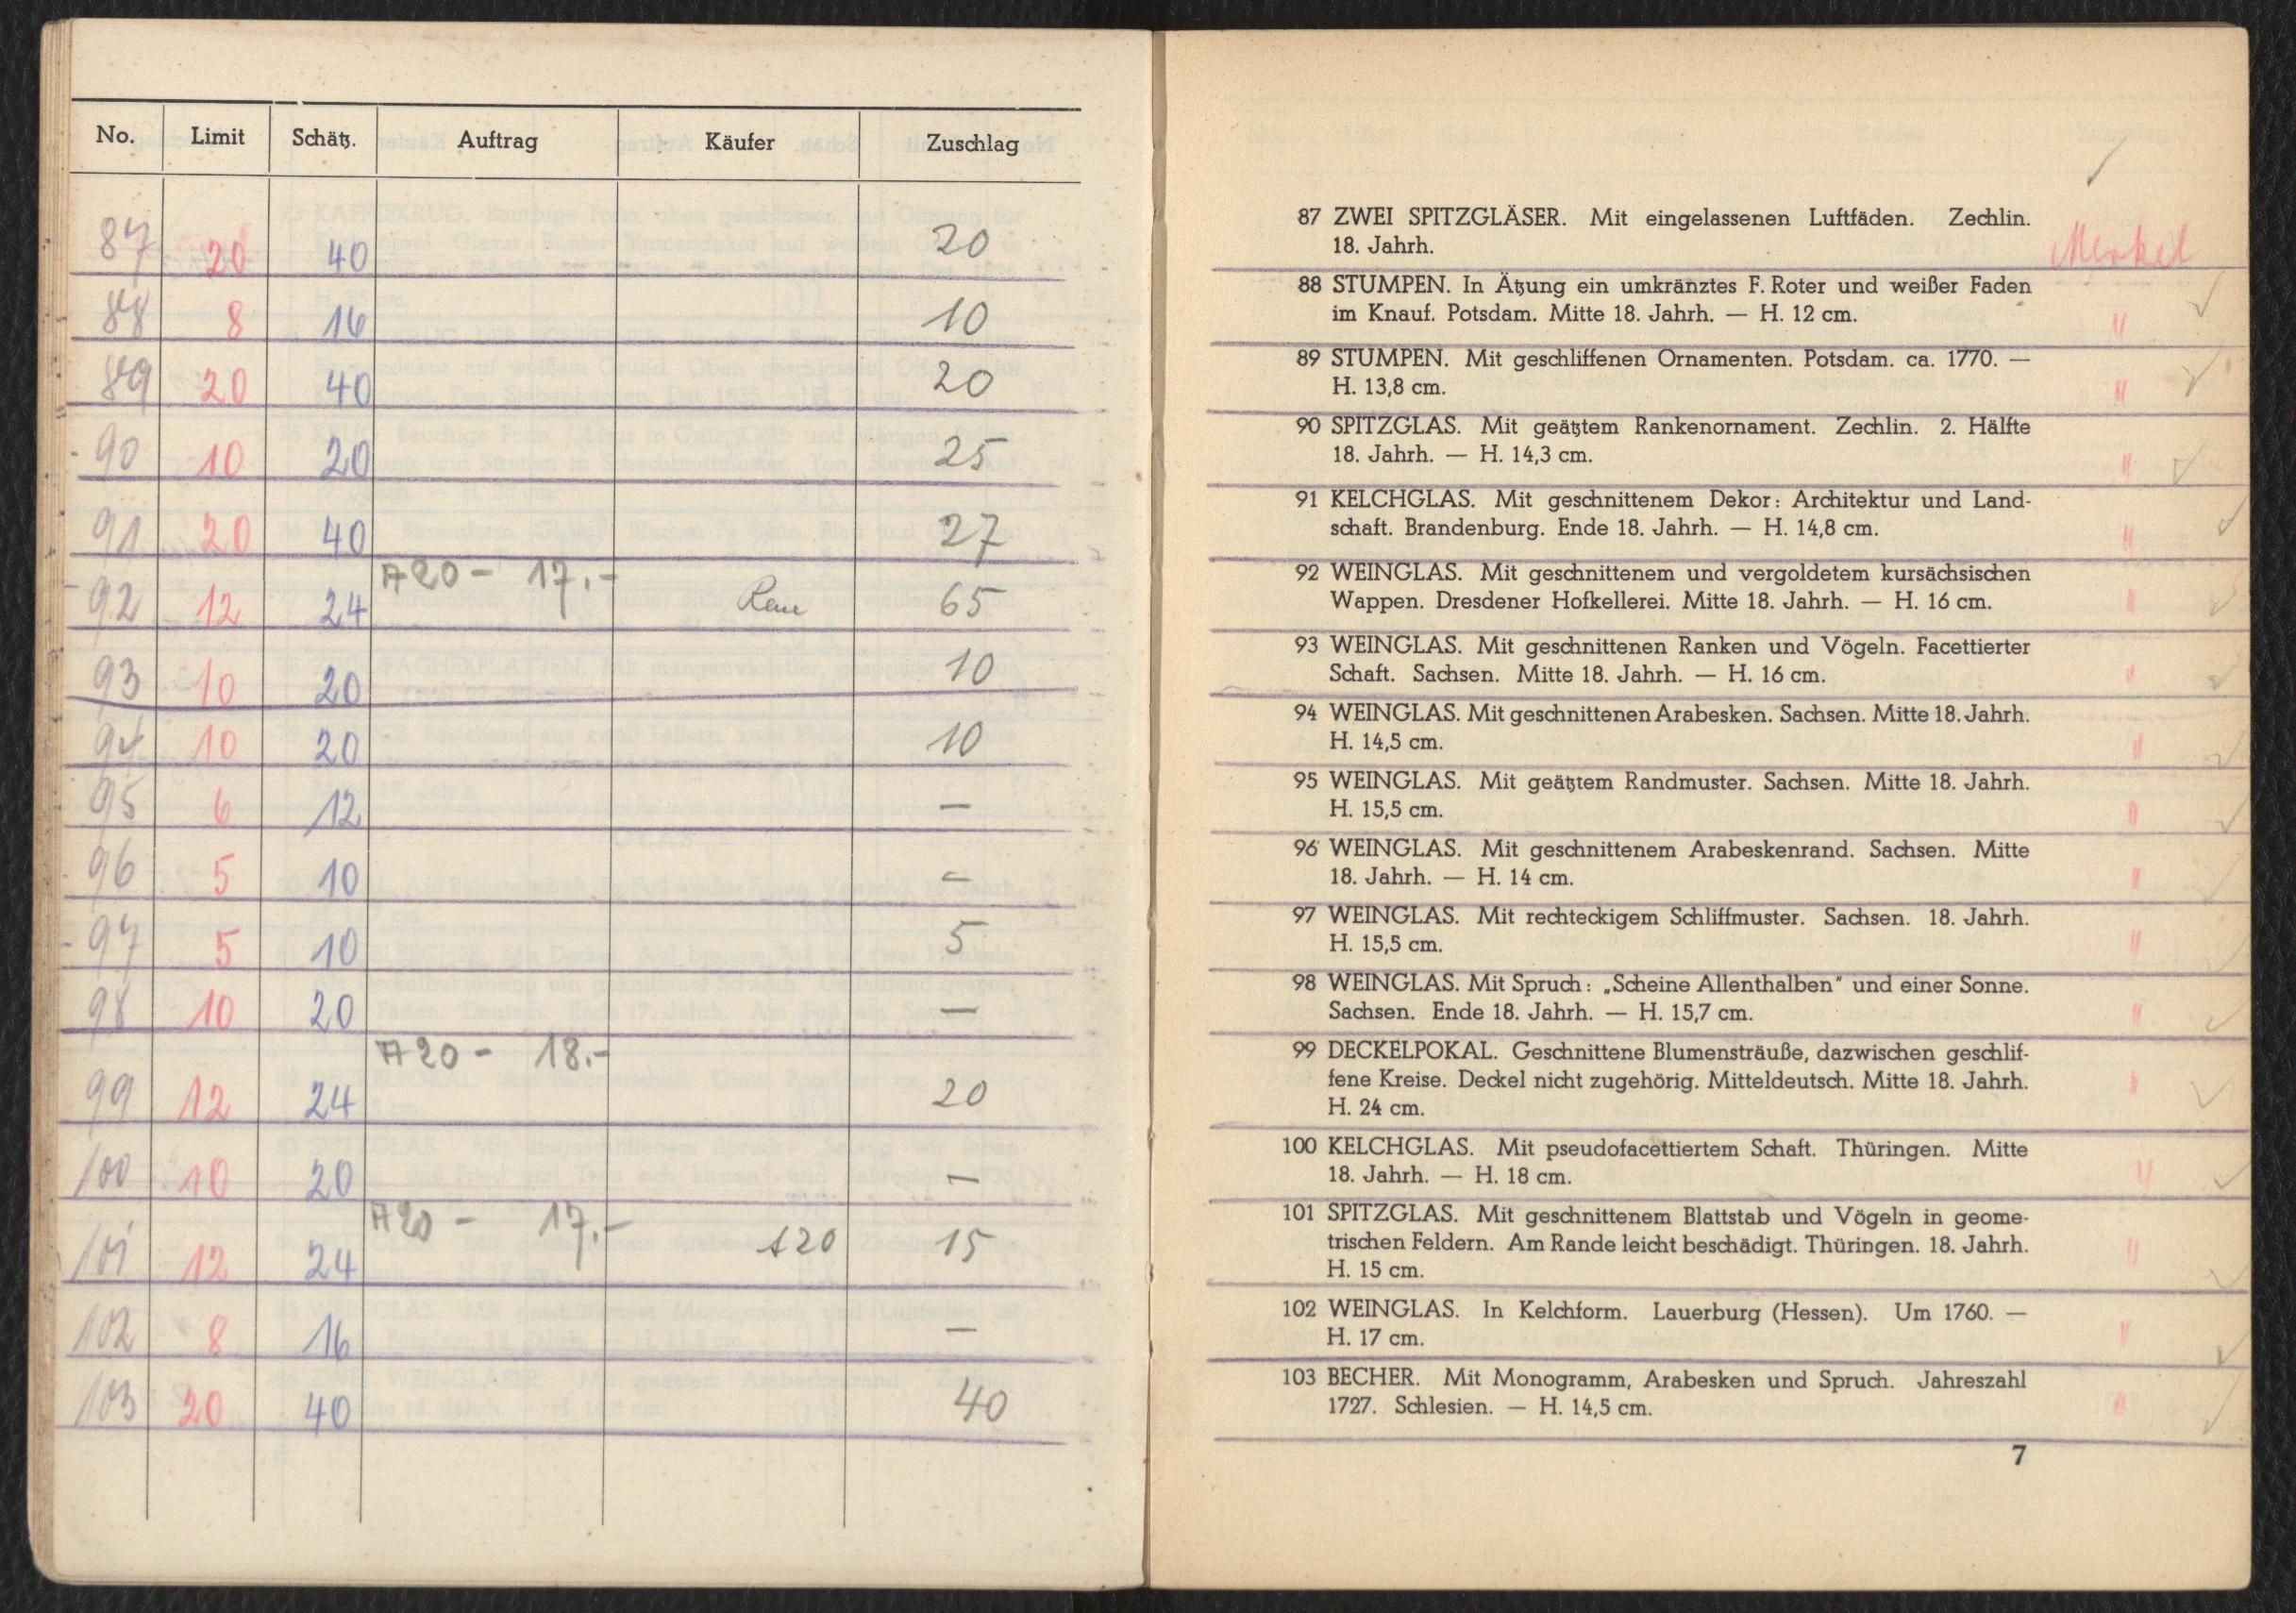 No. Limit Schätz. Auftrag Käufer Zuschlag
87 20 40 20
88 8 16 10
89 20 40 20
90 10 20 25
91 20 40 27
A20 - 17.-
92 12 24 65
93 10 20 10
94 10 20 10
95 6 12 —
96 5 10 —
97 5 10 5
98 10 20 —
A20 - 18.-
99 12 24 20
100 10 20 —
A20 - 17.-
101 12 24 A20 15
102 8 16 —
103 20 40 40
87 ZWEI SPITZGLÄSER. Mit eingelassenen Luftfäden. Zechlin.
18. Jahrh. Merkel
88 STUMPEN. In Ätzung ein umkränztes F. Roter und weißer Faden
im Knauf. Potsdam. Mitte 18. Jahrh. — H. 12 cm. "
89 STUMPEN. Mit geschliffenen Ornamenten. Potsdam. ca. 1770. —
H. 13,8 cm. "
90 SPITZGLAS. Mit geätztem Rankenornament. Zechlin. 2. Hälfte
18. Jahrh. — H. 14,3 cm. "
91 KELCHGLAS. Mit geschnittenem Dekor: Architektur und Land-
schaft. Brandenburg. Ende 18. Jahrh. — H. 14,8 cm. "
92 WEINGLAS. Mit geschnittenem und vergoldetem kursächsischen
Wappen. Dresdener Hofkellerei. Mitte 18. Jahrh. — H. 16 cm. "
93 WEINGLAS. Mit geschnittenen Ranken und Vögeln. Facettierter
Schaft. Sachsen. Mitte 18. Jahrh. — H. 16 cm. "
94 WEINGLAS. Mit geschnittenen Arabesken. Sachsen. Mitte 18. Jahrh.
H. 14,5 cm. "
95 WEINGLAS. Mit geätztem Randmuster. Sachsen. Mitte 18. Jahrh.
H. 15,5 cm. "
96 WEINGLAS. Mit geschnittenem Arabeskenrand. Sachsen. Mitte
18. Jahrh. — H. 14 cm. "
97 WEINGLAS. Mit rechteckigem Schliffmuster. Sachsen. 18. Jahrh.
H. 15,5 cm. "
98 WEINGLAS. Mit Spruch: „Scheine Allenthalben" und einer Sonne.
Sachsen. Ende 18. Jahrh. — H. 15,7 cm. "
99 DECKELPOKAL. Geschnittene Blumensträuße, dazwischen geschlif-
fene Kreise. Deckel nicht zugehörig. Mitteldeutsch. Mitte 18. Jahrh. "
H. 24 cm.
100 KELCHGLAS. Mit pseudofacettiertem Schaft. Thüringen. Mitte
18. Jahrh. — H. 18 cm. "
101 SPITZGLAS. Mit geschnittenem Blattstab und Vögeln in geome-
trischen Feldern. Am Rande leicht beschädigt. Thüringen. 18. Jahrh. "
H. 15 cm.
102 WEINGLAS. In Kelchform. Lauerburg (Hessen). Um 1760. —
H. 17 cm. "
103 BECHER. Mit Monogramm, Arabesken und Spruch. Jahreszahl
1727. Schlesien. — H. 14,5 cm. "
7